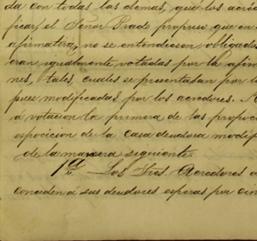 da con todas las demas, que los acree
ficar, el Señor Prado propuso que en
afirmativa, no se entendiesen obligados
eran igualmente votadas por la afir
nes, tales cuales se presentaban por la
pues modificadas por los acreedores.
á votacion la primera de las proposi
esposicion de la casa deudora modifi
de la manera siguiente.
1ª Los Sres Acreedores
conceden á sus deudores esperas por cin